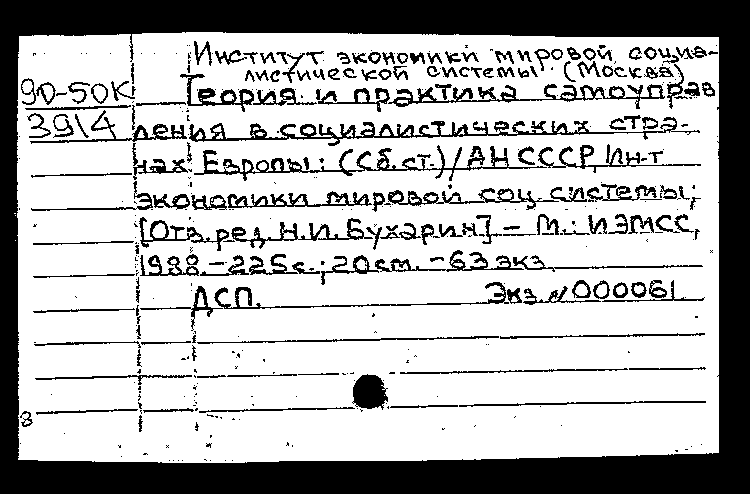 Институт экономики мировой социа-
листической системы (Москва)
90-50К Теория и практика самоуправ
3914 ления в социалистических стра-
нах Европы: (Сб.ст.)/АН СССР, Ин-т
экономики мировой соц системы;
[Отв.ред. Н.И.Бухарин] - М.: ИЭМСС,
1988.-225с.; 20см. -63 экз.
ДСП. Экз. N 000061
8